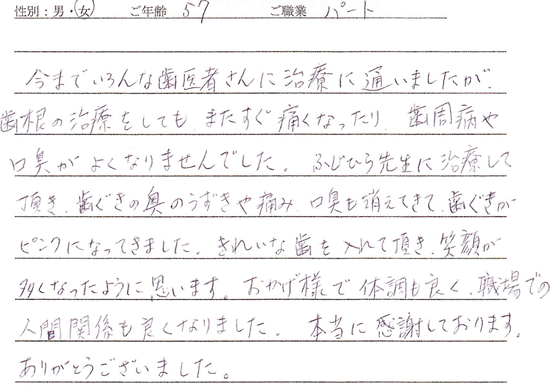 性別：男・女 ご年齢 57 ご職業 パート
今までいろんな歯医者さんに治療に通いましたが、
歯根の治療をしても、またすぐ痛くなったり、歯周病や
口臭がよくなりませんでした。ふじひら先生に治療して
頂き、歯ぐきの奥のうずきや痛み、口臭も消えてきて、歯ぐきが
ピンクになってきました。きれいな歯を入れて頂き、笑顔が
多くなったように思います。おかげ様で体調も良く、職場での
人間関係も良くなりました。本当に感謝しております。
ありがとうございました。